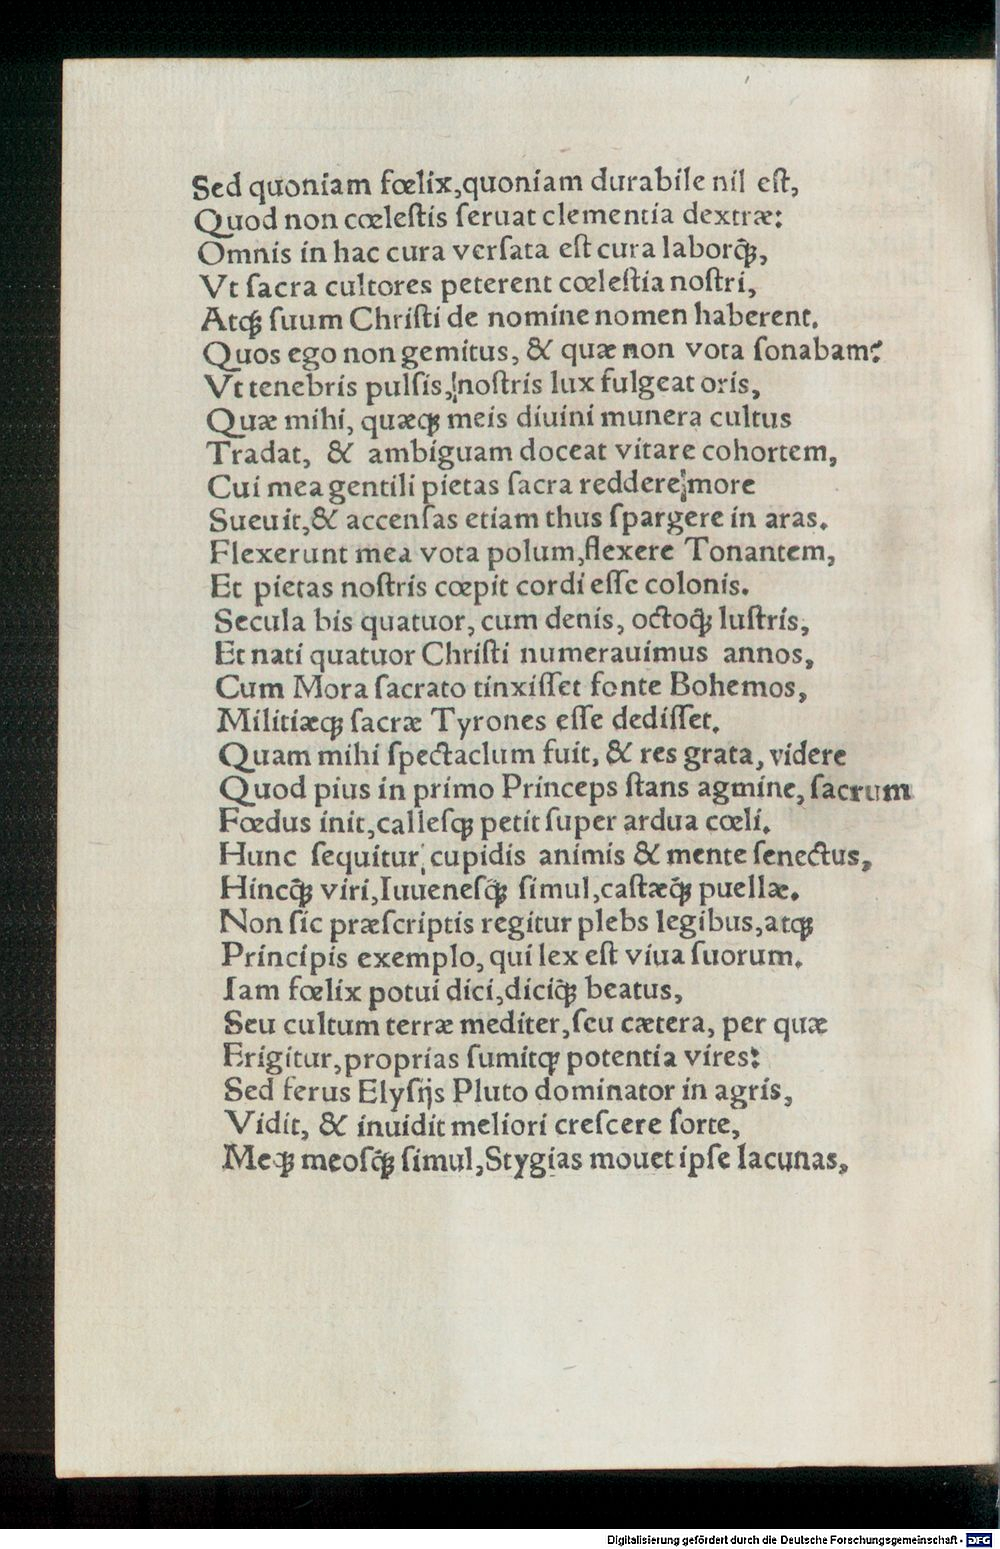 Sed quoniam fœlix,quoniam durabile nil eſt,
Quod non cœleſtis ſeruat clementia dextræ:
Omnis in hac cura verſata eſt cura laborq̃ꝫ,
Vt ſacra cultores peterent cœleſtia noſtri,
Atqꝫ ſuum Chriſti de nomine nomen haberent.
Quos ego non gemitus, & quæ non vota ſonabam?
Vt tenebris pulſis, noſtris lux fulgeat oris,
Quæ mihi, quæqꝫ meis diuini munera cultus
Tradat, & ambiguam doceat vitare cohortem,
Cui mea gentili pietas ſacra reddere more
Sueuit,& accenſas etiam thus ſpargere in aras.
Flexerunt mea vota polum,flexere Tonantem,
Et pietas noſtris cœpit cordi eſſe colonis.
Secula bis quatuor, cum denis, octoq̃ꝫ luſtris,
Et nati quatuor Chriſti numerauimus annos,
Cum Mora ſacrato tinxiſſet fonte Bohemos,
Militiæqꝫ ſacræ Tyrones eſſe dediſſet.
Quam mihi ſpectaclum fuit, & res grata, videre
Quod pius in primo Princeps ſtans agmine, ſacrum
Fœdus init,calleſqꝫ petit ſuper ardua cœli.
Hunc ſequitur cupidis animis & mente ſenectus,
Hincq̃ꝫ viri,Iuueneſq̃ꝫ ſimul,caſtæq̃ꝫ puellæ.
Non ſic præſcriptis regitur plebs legibus,atqꝫ
Principis exemplo, qui lex eſt viua ſuorum.
Iam fœlix potui dici,diciq̃ꝫ beatus,
Seu cultum terræ mediter,ſeu cætera, per quæ
Erigitur,proprias ſumitqꝫ potentia vires:
Sed ferus Elyſijs Pluto dominator in agris,
Vidit, & inuidit meliori creſcere ſorte,
Meqꝫ meoſq̃ꝫ ſimul,Stygias mouet ipſe lacunas,
Digitalisierung gefördert durch die Deutsche Forschungsgemeinschaft - DFG